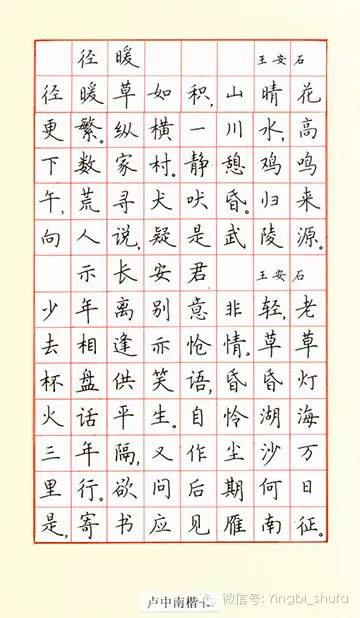 径暖 王安石
径暖草如积,山晴花
更繁。纵横一川水,高
下数家村。静憩鸡鸣
午,荒寻犬吠昏。归来
向人说,疑是武陵源。
示长安君 王安石
少年离别意非轻,老
去相逢亦怆情。草草
杯盘供笑语,昏昏灯
火话平生。自怜湖海
三年隔,又作尘沙万
里行。欲问后期何日
是,寄书应见雁南征。
卢中南楷书
微信号: Yingbi_shufa